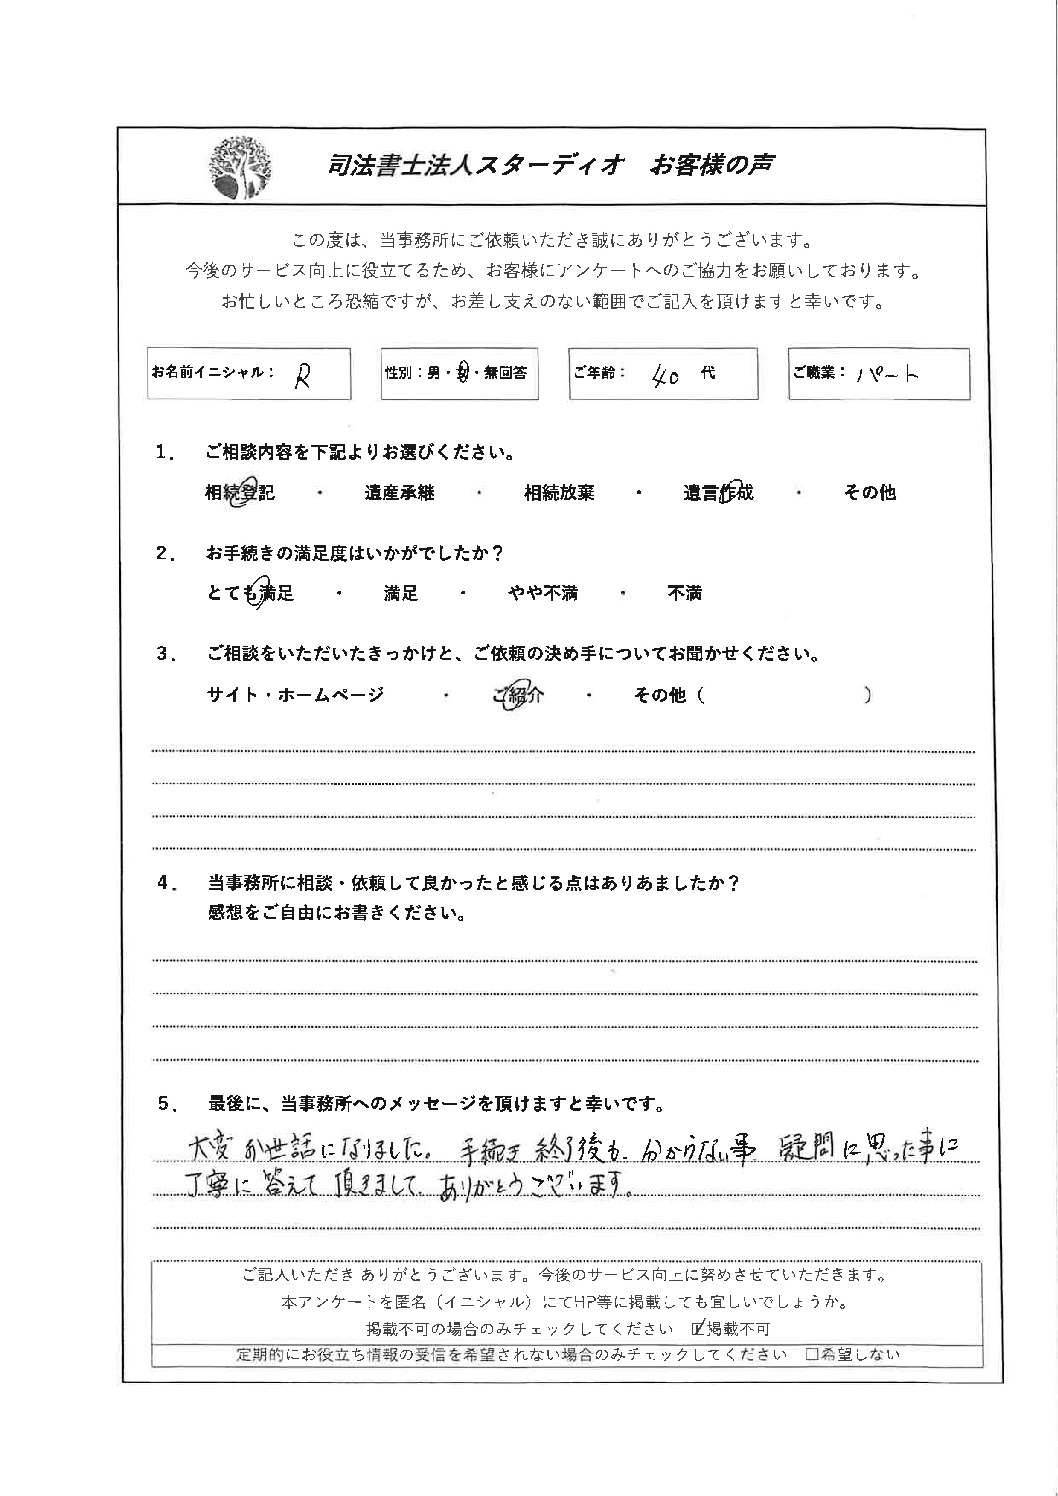 司法書士法人スターディオ　お客様の声
この度は、当事務所にご依頼いただき誠にありがとうございます。
今後のサービス向上に役立てるため、お客様にアンケートへのご協力をお願いしております。
お忙しいところ恐縮ですが、お差し支えのない範囲でご記入を頂けますと幸いです。
お名前イニシャル： R　性別：男・女・無回答　ご年齢： 40 代　ご職業：パート
1． ご相談内容を下記よりお選びください。
相続登記 ・ 遺産承継 ・ 相続放棄 ・ 遺言作成 ・ その他
2． お手続きの満足度はいかがでしたか？
とても満足 ・ 満足 ・ やや不満 ・ 不満
3． ご相談をいただいたきっかけと、ご依頼の決め手についてお聞かせください。
サイト・ホームページ ・ ご紹介 ・ その他（　　　　　　　　　）
4． 当事務所に相談・依頼して良かったと感じる点はありあましたか？
感想をご自由にお書きください。
5． 最後に、当事務所へのメッセージを頂けますと幸いです。
大変お世話になりました。手続き終了後も、分からない事 疑問に思った事に
丁寧に答えて頂きまして、ありがとうございます。
ご記入いただき ありがとうございます。今後のサービス向上に努めさせていただきます。
本アンケートを匿名（イニシャル）にてHP等に掲載しても宜しいでしょうか。
掲載不可の場合のみチェックしてください　☑掲載不可
定期的にお役立ち情報の受信を希望されない場合のみチェックしてください　□希望しない